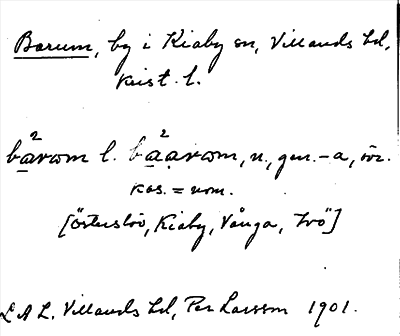 Barum, by i Kiaby sn, Villands hd,
Krist. l.
bàrom l. bàarom, n., gen. -a, övr.
kas. = nom.
[Österslöv, Kiaby, Vånga, Ivö]
L A L. Villands hd, Per Larsson 1901.